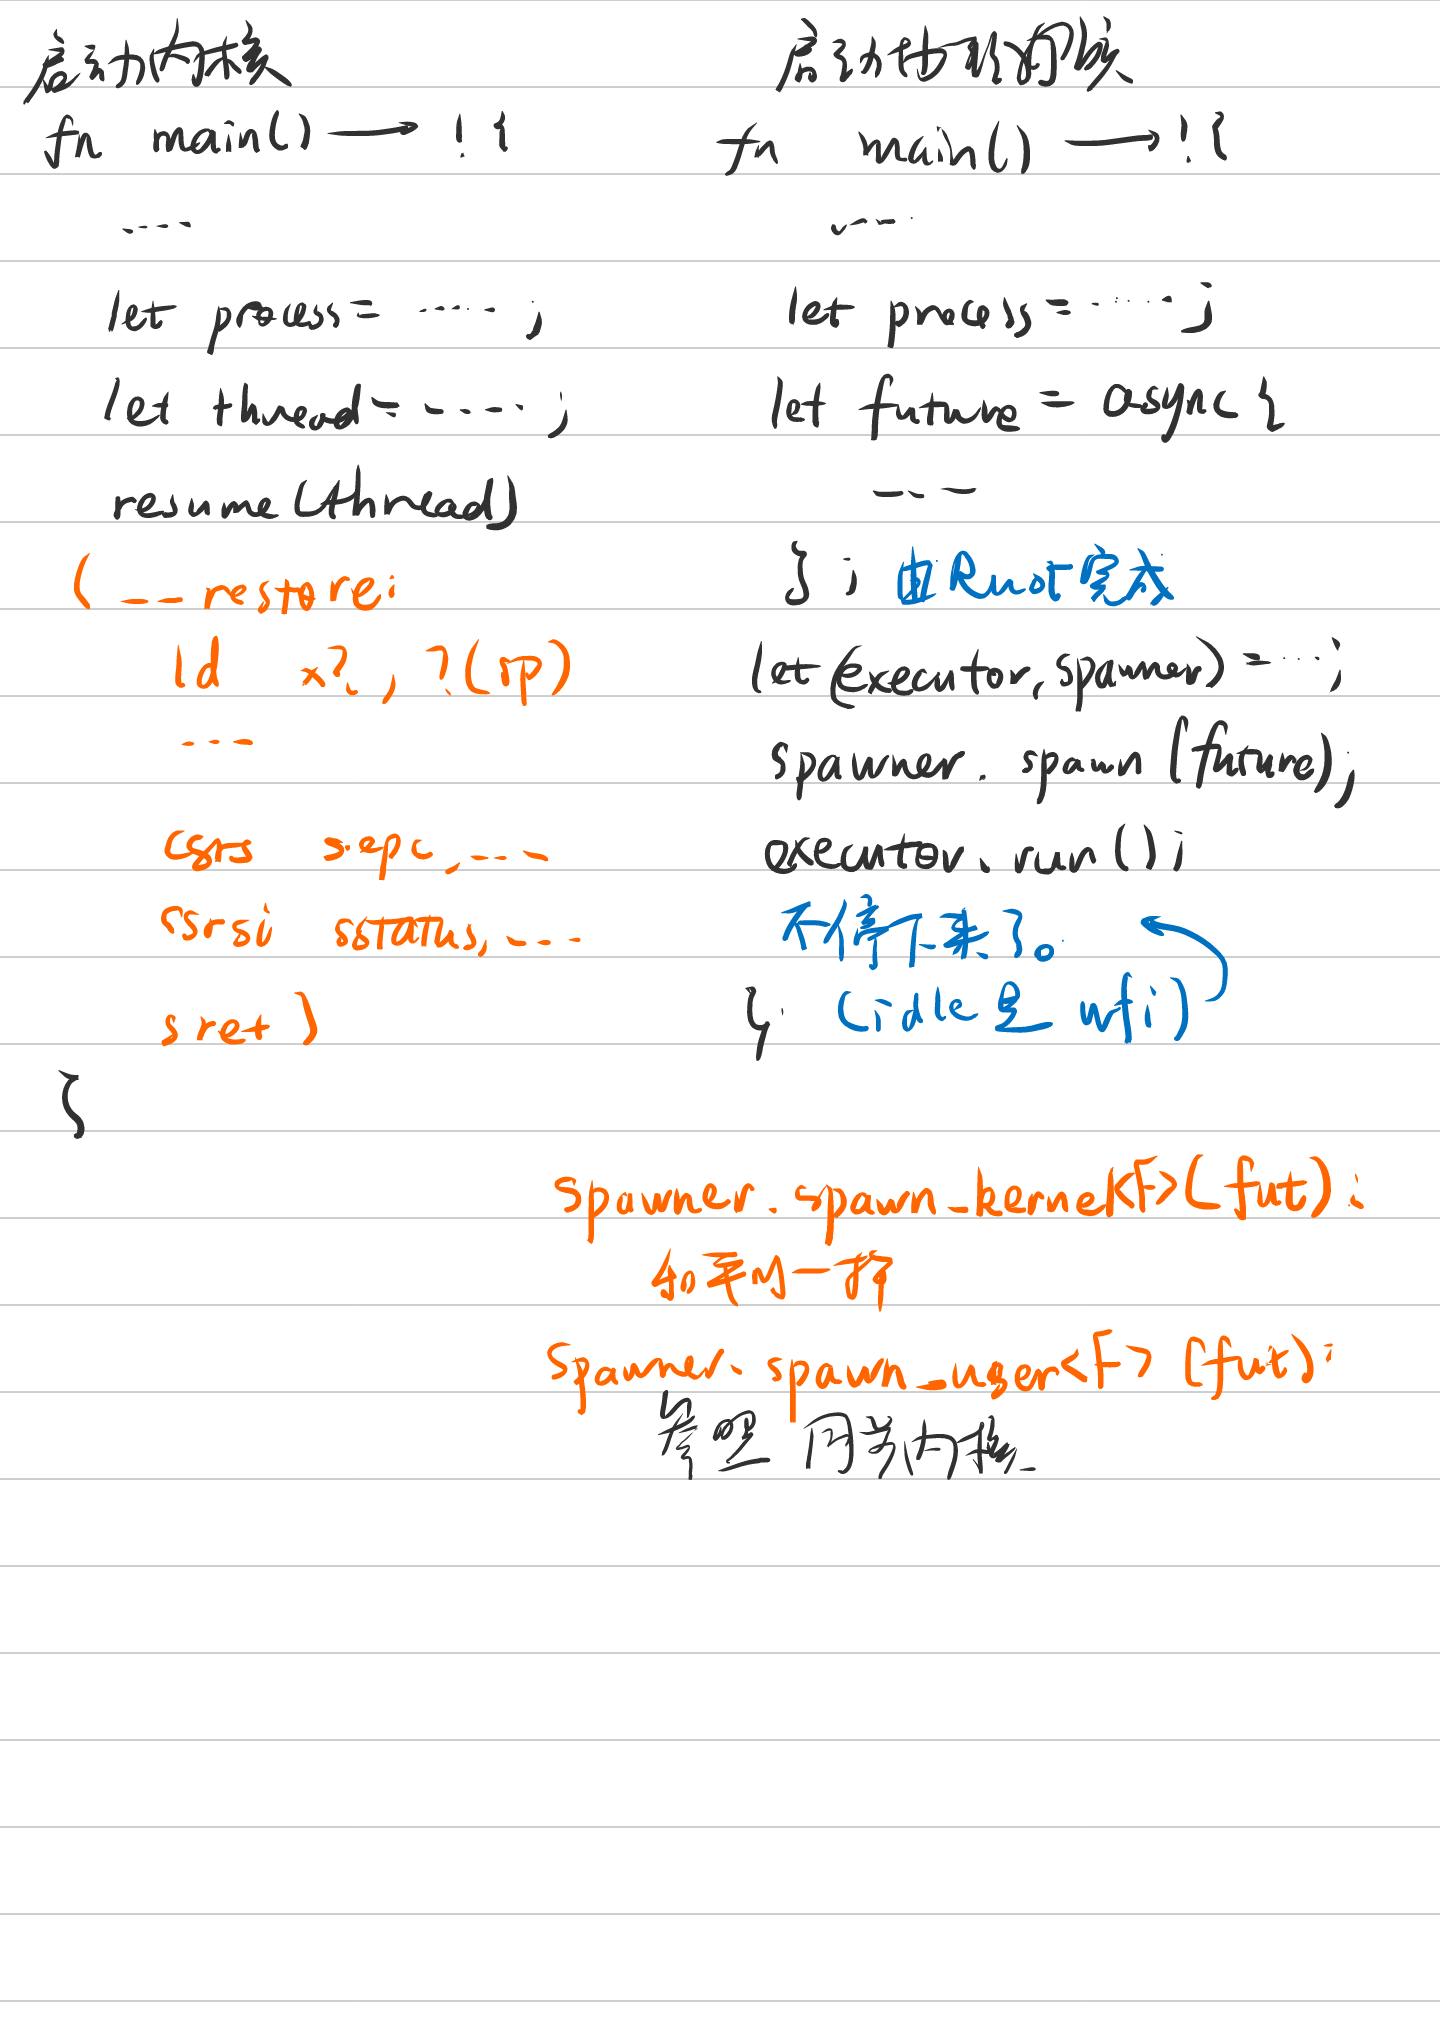 启动内核
fn main() → ! {
....
let process = ..... ;
let thread = ..... ;
resume(thread)
( __restore:
ld x?, ?(sp)
...
csrs sepc, ...
csrsi sstatus, ...
sret )
}
启动协程内核
fn main() → ! {
....
let process = ..... ;
let future = async {
...
} ; 由Rust完成
let (executor, spawner) = ... ;
spawner. spawn (future);
executor. run();
不停下来了。
} (idle是 wfi)
spawner. spawn_kernel<F>(fut):
和平时一样
spawner. spawn_user<F> (fut):
参照 同步内核